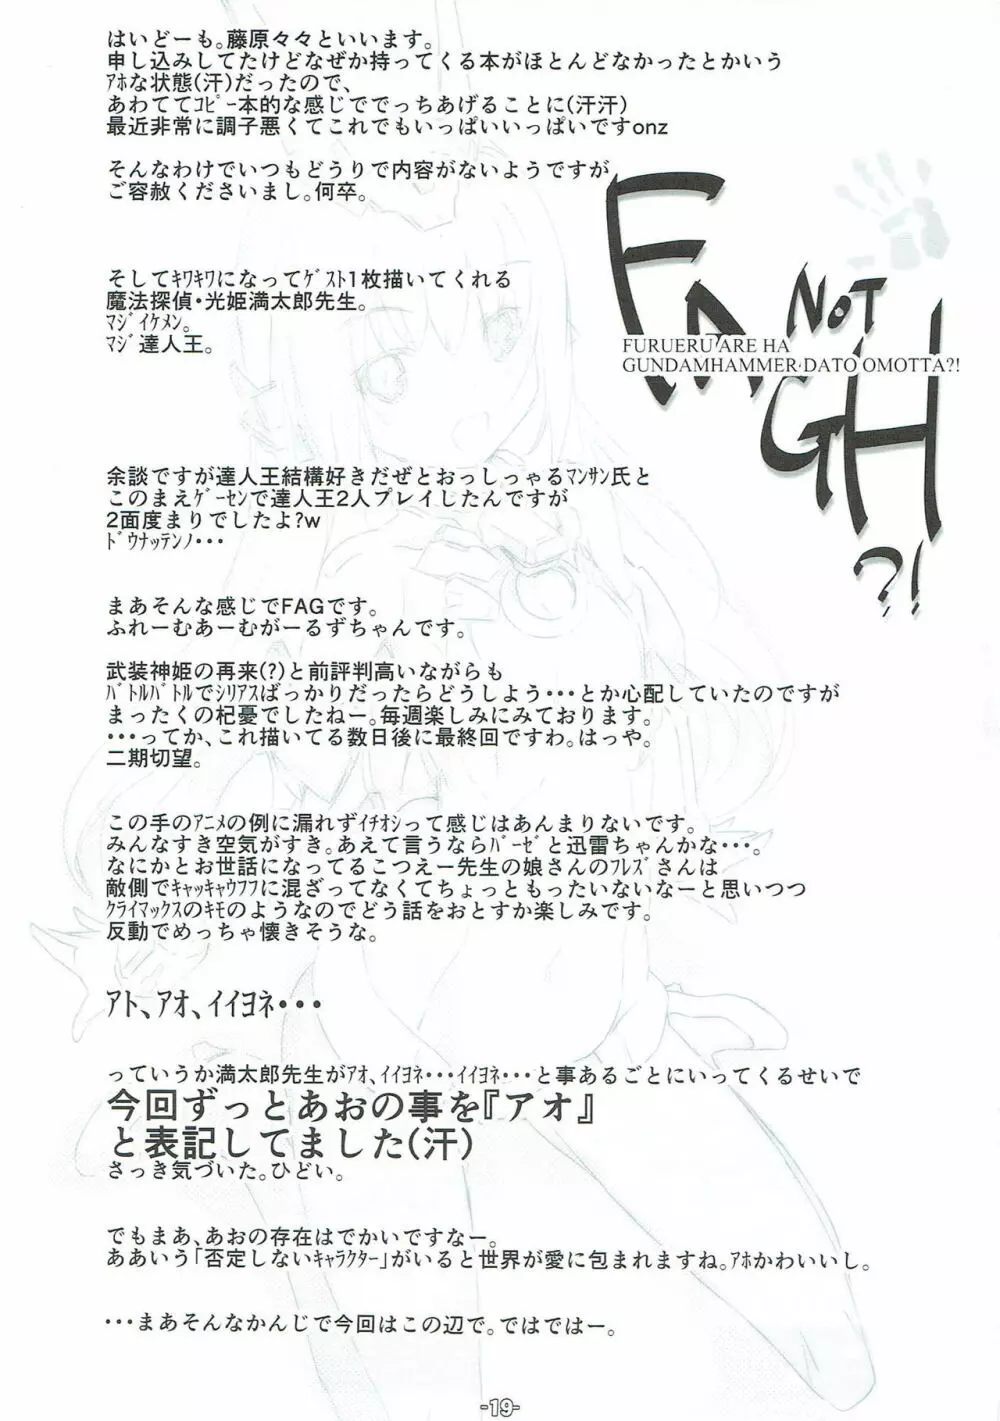 はいどーも。藤原々々といいます。
申し込みしてたけどなぜか持ってくる本がほとんどなかったとかいう
ｱﾎな状態(汗)だったので、
あわててｺﾋﾟｰ本的な感じででっちあげることに(汗汗)
最近非常に調子悪くてこれでもいっぱいいっぱいですonz
そんなわけでいつもどうりで内容がないようですが
ご容赦くださいまし。何卒。
FA NOT GH ?!
FURUERU ARE HA
GUNDAMHAMMER･DATO OMOTTA?!
そしてｷﾜｷﾜになってｹﾞｽﾄ1枚描いてくれる
魔法探偵・光姫満太郎先生。
ﾏｼﾞｲｹﾒﾝ。
ﾏｼﾞ達人王。
余談ですが達人王結構好きだぜとおっしゃるﾏﾝｻﾝ氏と
このまえｹﾞｰｾﾝで達人王2人プレイしたんですが
2面度まりでしたよ?w
ﾄﾞｳﾅｯﾃﾝﾉ・・・
まあそんな感じでFAGです。
ふれーむあーむがーるずちゃんです。
武装神姫の再来(?)と前評判高いながらも
ﾊﾞﾄﾙﾊﾞﾄﾙでｼﾘｱｽばっかりだったらどうしよう・・・とか心配していたのですが
まったくの杞憂でしたねー。毎週楽しみにみております。
・・・ってか、これ描いてる数日後に最終回ですわ。はっや。
二期切望。
この手のｱﾆﾒの例に漏れずｲﾁｵｼって感じはあんまりないです。
みんなすき空気がすき。あえて言うならﾊﾞｰｾﾞと迅雷ちゃんかな・・・。
なにかとお世話になってるこつえー先生の娘さんのﾌﾚｽﾞさんは
敵側でｷｬｯｷｬｳﾌﾌに混ざってなくてちょっともったいないなーと思いつつ
ｸﾗｲﾏｯｸｽのｷﾓのようなのでどう話をおとすか楽しみです。
反動でめっちゃ懐きそうな。
ｱﾄ、ｱｵ、ｲｲﾖﾈ・・・
っていうか満太郎先生がｱｵ、ｲｲﾖﾈ・・・ｲｲﾖﾈ・・・と事あるごとにいってくるせいで
今回ずっとあおの事を『アオ』
と表記してました(汗)
さっき気づいた。ひどい。
でもまあ、あおの存在はでかいですなー。
ああいう「否定しないｷｬﾗｸﾀｰ」がいると世界が愛に包まれますね。ｱﾎかわいいし。
・・・まあそんなかんじで今回はこの辺で。ではではー。
-19-